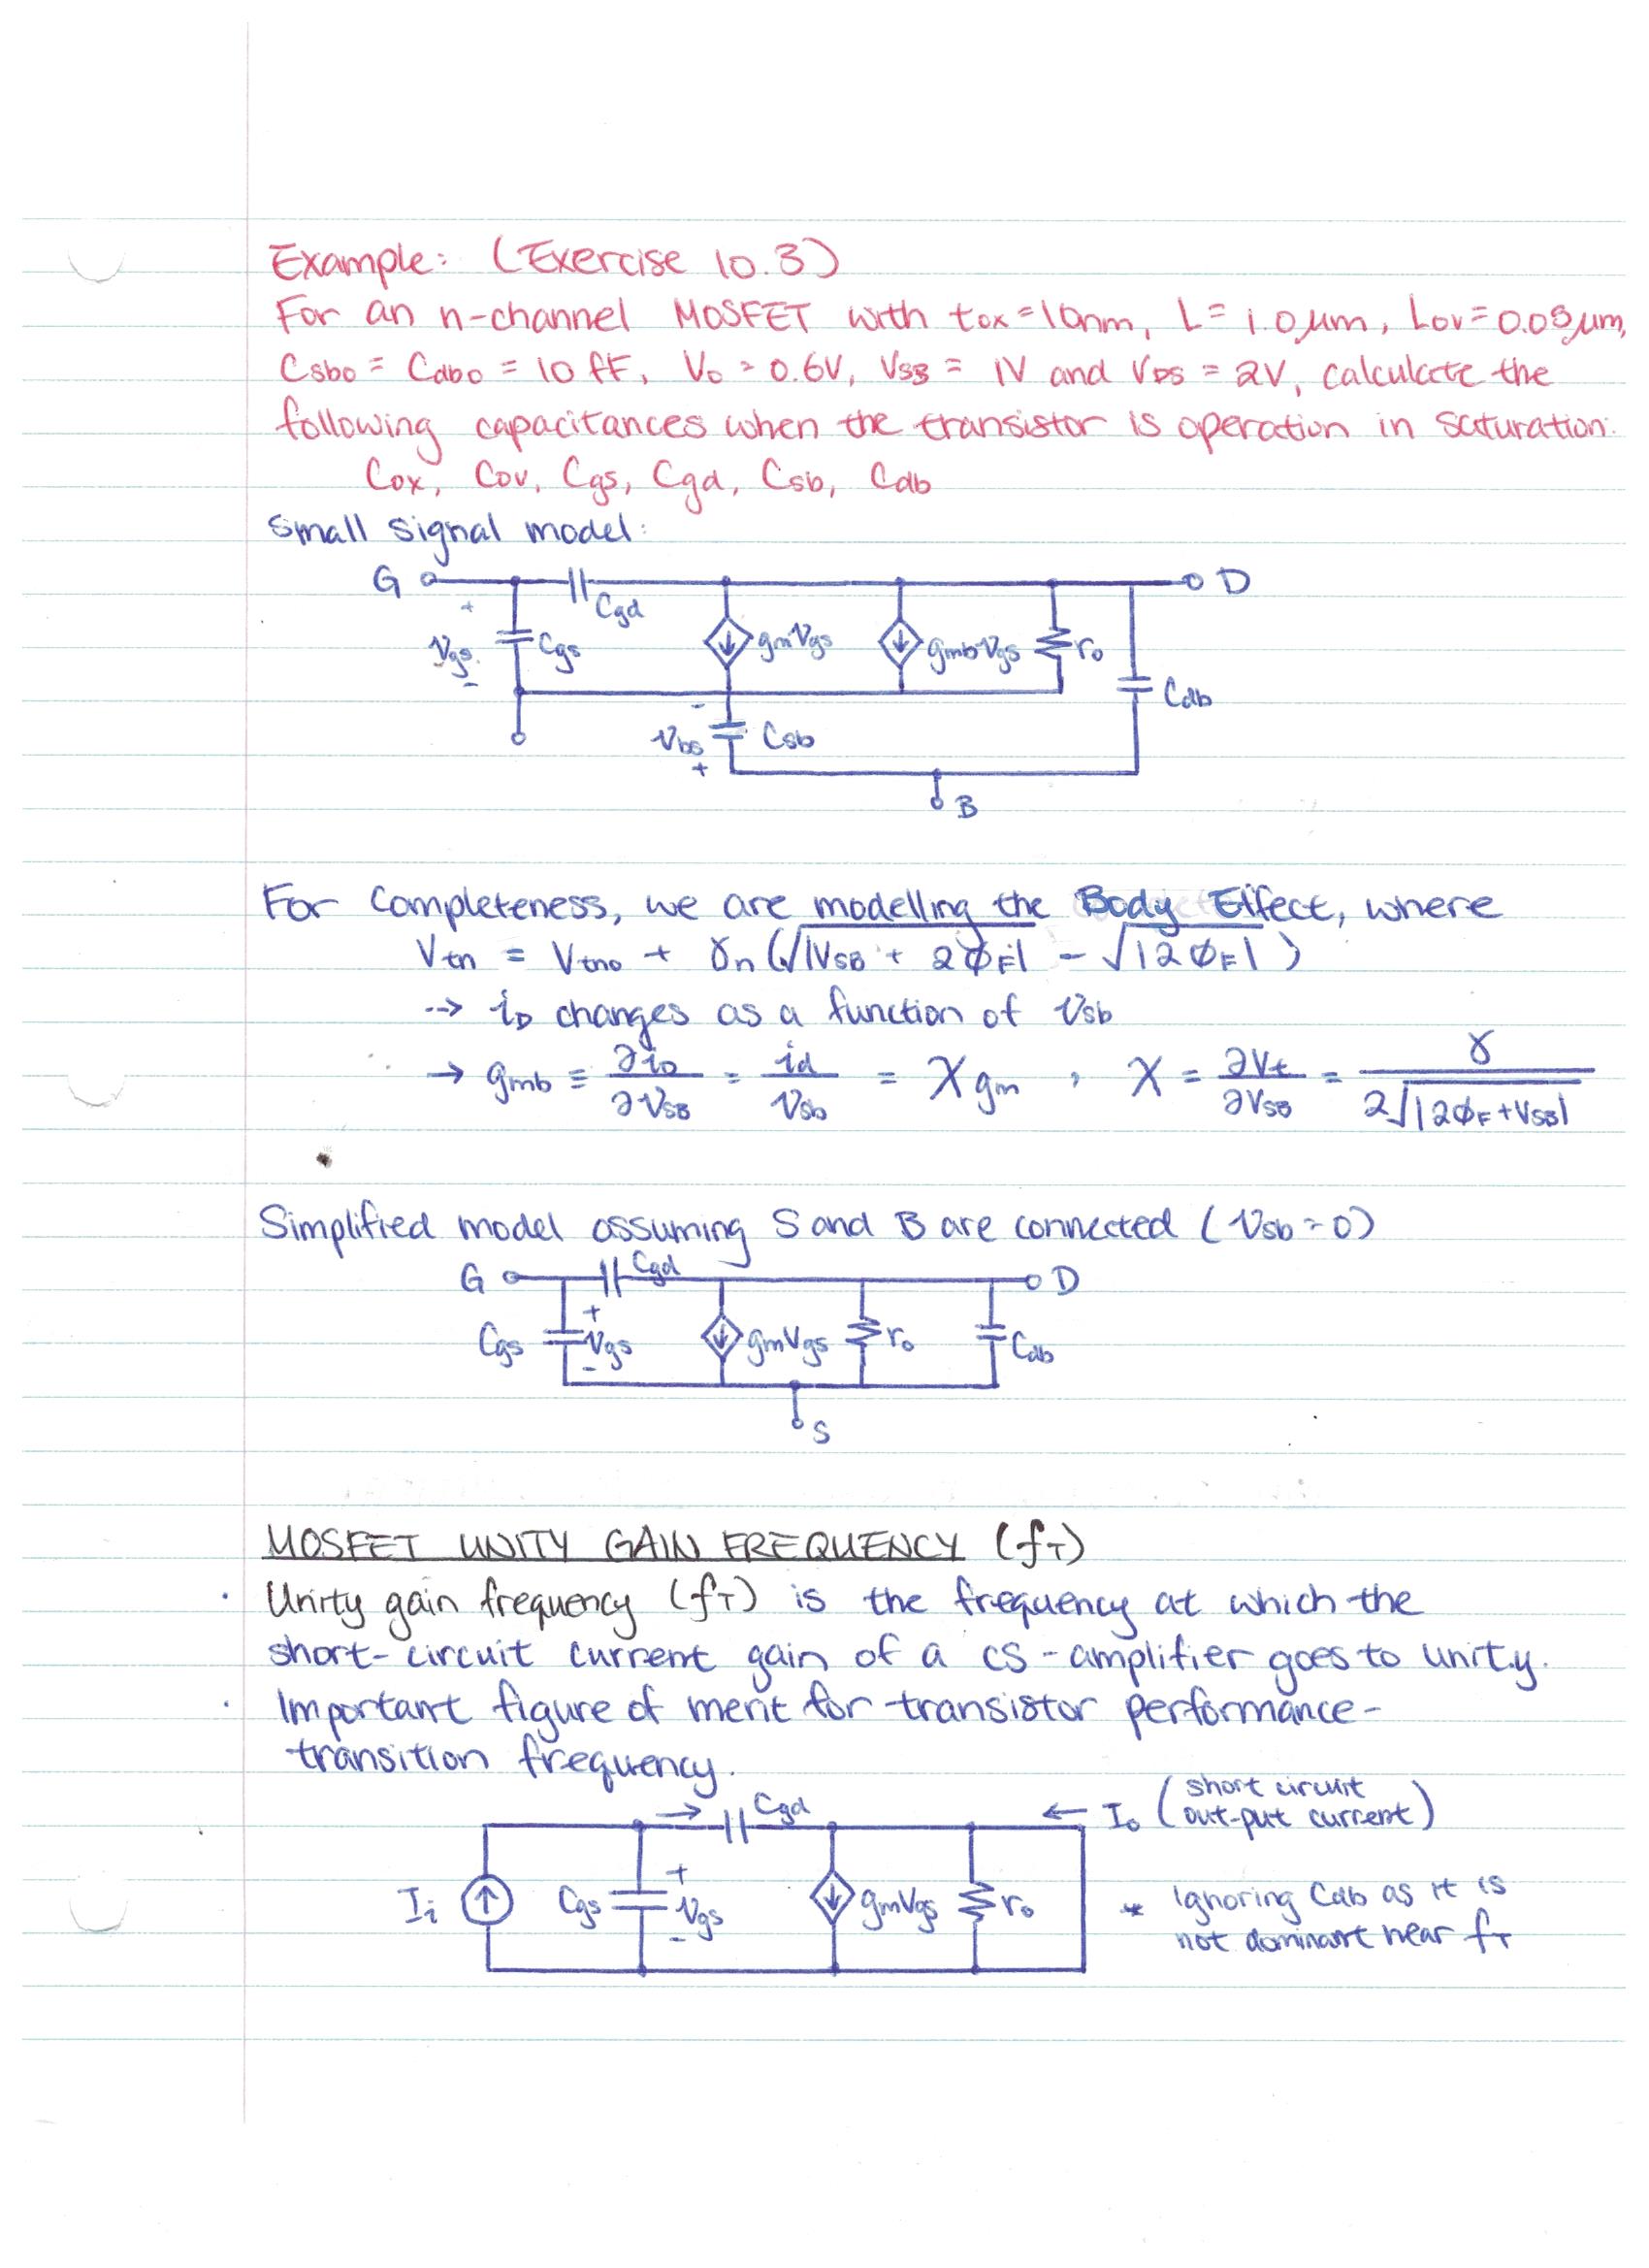 Example: (Exercise 10.3)
For an n-channel MOSFET with tox = 10nm, L = 1.0 μm, Lov = 0.05μm,
Csbo = Cdbo = 10 fF, Vo = 0.6V, VSB = 1V and VDS = 2V, calculate the
following capacitances when the transistor is operation in saturation:
Cox, Cov, Cgs, Cgd, Csb, Cdb
Small signal model:
G Cgd D
+ Vgs - Cgs gmVgs gmbVgs ro Cdb
- Vbs + Csb
B
For completeness, we are modelling the Body Effect, where
Vtn = Vtno + γn (√|VSB + 2ϕF| - √|2ϕF|)
--> iD changes as a function of Vsb
→ gmb ≡ ∂iD/∂VSB = id/Vsb = χ gm , χ = ∂Vt/∂VSB = γ/2√|2ϕF + VSB|
Simplified model assuming S and B are connected (Vsb = 0)
G Cgd D
Cgs + Vgs - gmVgs ro Cdb
S
MOSFET UNITY GAIN FREQUENCY (fT)
· Unity gain frequency (fT) is the frequency at which the
short-circuit current gain of a CS-amplifier goes to unity.
· Important figure of merit for transistor performance-
transition frequency.
→ Cgd ← Io (short circuit
out-put current)
Ii Cgs + Vgs - gmVgs ro
* Ignoring Cdb as it is
not dominant near fT